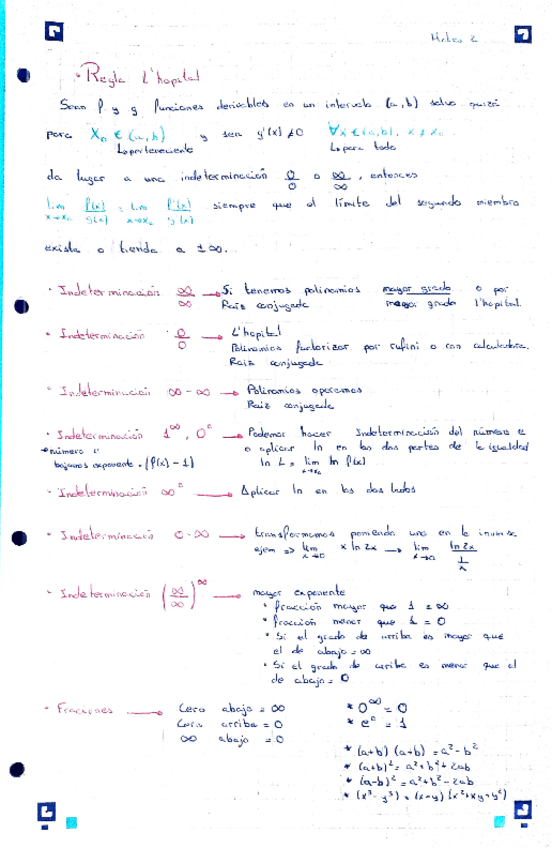 Mates 2
· Regla L'hopital
Sean f y g funciones derivables en un intervalo (a,b) salvo quizá
para X₀ ∈ (a,b) y sea g'(x) ≠ 0 ∀x ∈ (a,b), x ≠ x₀
↳ perteneciente ↳ para todo
da lugar a una indeterminación 0/0 o ∞/∞, entonces
lim x→x₀ f(x)/g(x) = lim x→x₀ f'(x)/g'(x) siempre que el límite del segundo miembro
exista o tienda a ±∞.
· Indeterminación ∞/∞ → Si tenemos polinomios mayor grado/mayor grado o por L'hopital.
Raiz conjugada
· Indeterminación 0/0 → L'hopital
Polinomios factorizar por rufini o con calculadora.
Raiz conjugada
· Indeterminación ∞ - ∞ → Polinomios operamos
Raiz conjugada
· Indeterminación 1^∞, 0^0 → Podemos hacer Indeterminación del número e
→ número e o aplicar ln en las dos partes de la igualdad
bajamos exponente · (f(x) - 1) ln L = lim x→x₀ ln f(x)
· Indeterminación ∞^0 → Aplicar ln en los dos lados
· Indeterminación 0·∞ → transformamos poniendo uno en la inversa
ejem => lim x→0 x ln 2x → lim x→0 ln 2x / (1/x)
· Indeterminación (∞/∞)^∞ → mayor exponente
· fracción mayor que 1 = ∞
· fracción menor que 1 = 0
· Si el grado de arriba es mayor que
el de abajo = ∞
· Si el grado de arriba es menor que el
de abajo = 0
· Fracciones → Cero abajo = ∞
Cero arriba = 0
∞ abajo = 0
* 0^∞ = 0
* e^0 = 1
* (a+b) (a+b) = a² - b²
* (a+b)² = a² + b² + 2ab
* (a-b)² = a² + b² - 2ab
* (x³ - y³) = (x-y) (x² + xy + y²)